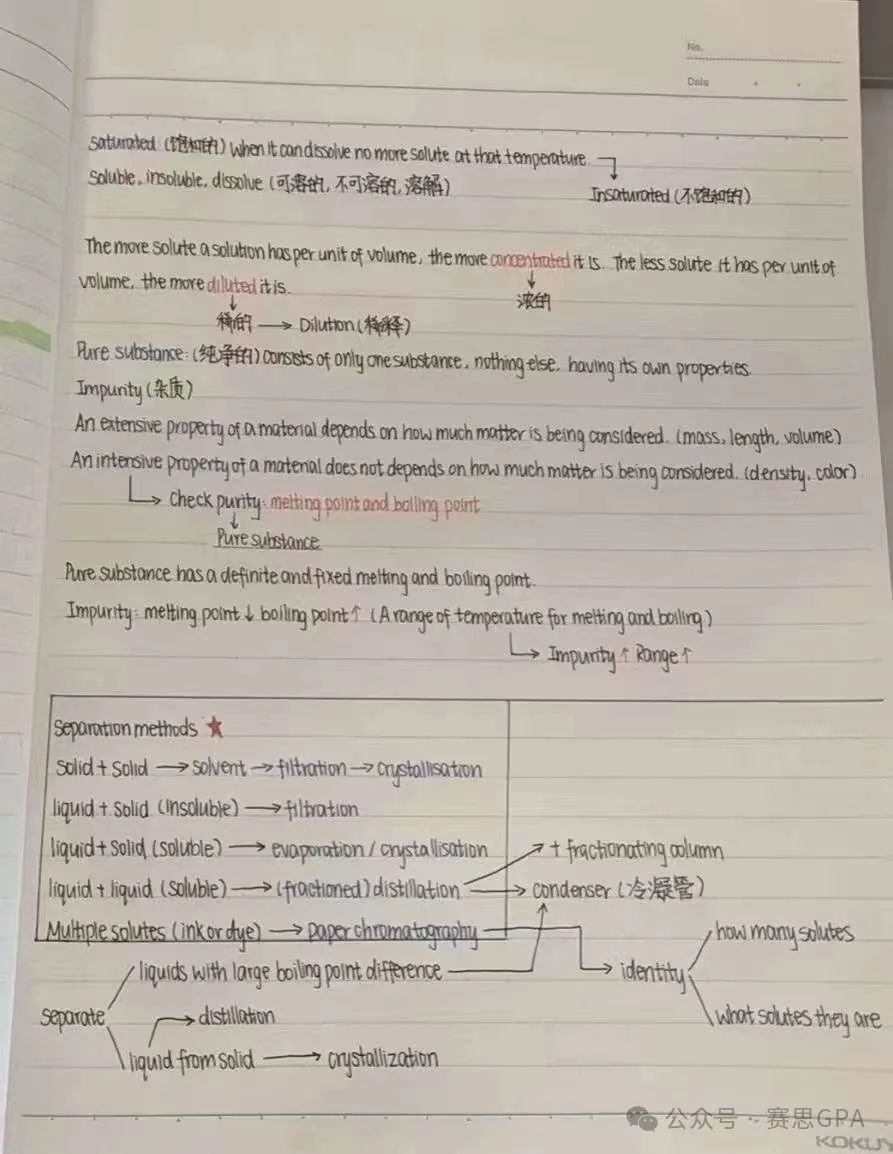 No.
Date
Saturated (饱和的) When it can dissolve no more solute at that temperature.
Soluble, insoluble, dissolve (可溶的, 不可溶的, 溶解)
Insaturated (不饱和的)
The more solute a solution has per unit of volume, the more concentrated it is. The less solute it has per unit of
volume, the more diluted it is.
浓的
稀的 → Dilution (稀释)
Pure substance: (纯净的) consists of only one substance, nothing else, having its own properties.
Impurity (杂质)
An extensive property of a material depends on how much matter is being considered. (mass, length, volume)
An intensive property of a material does not depends on how much matter is being considered. (density, color)
Check purity: melting point and boiling point
Pure substance
Pure substance has a definite and fixed melting and boiling point.
Impurity: melting point ↓ boiling point ↑ (A range of temperature for melting and boiling)
Impurity ↑ Range ↑
Separation methods ★
solid + solid → solvent → filtration → crystallisation
liquid + solid (insoluble) → filtration
liquid + solid (soluble) → evaporation / crystallisation
+ fractionating column
liquid + liquid (soluble) → (fractioned) distillation → condenser (冷凝管)
Multiple solutes (ink or dye) → paper chromatography
how many solutes
liquids with large boiling point difference
identity
separate
distillation
what solutes they are
liquid from solid → crystallization
公众号 · 赛思GPA
KOKUY